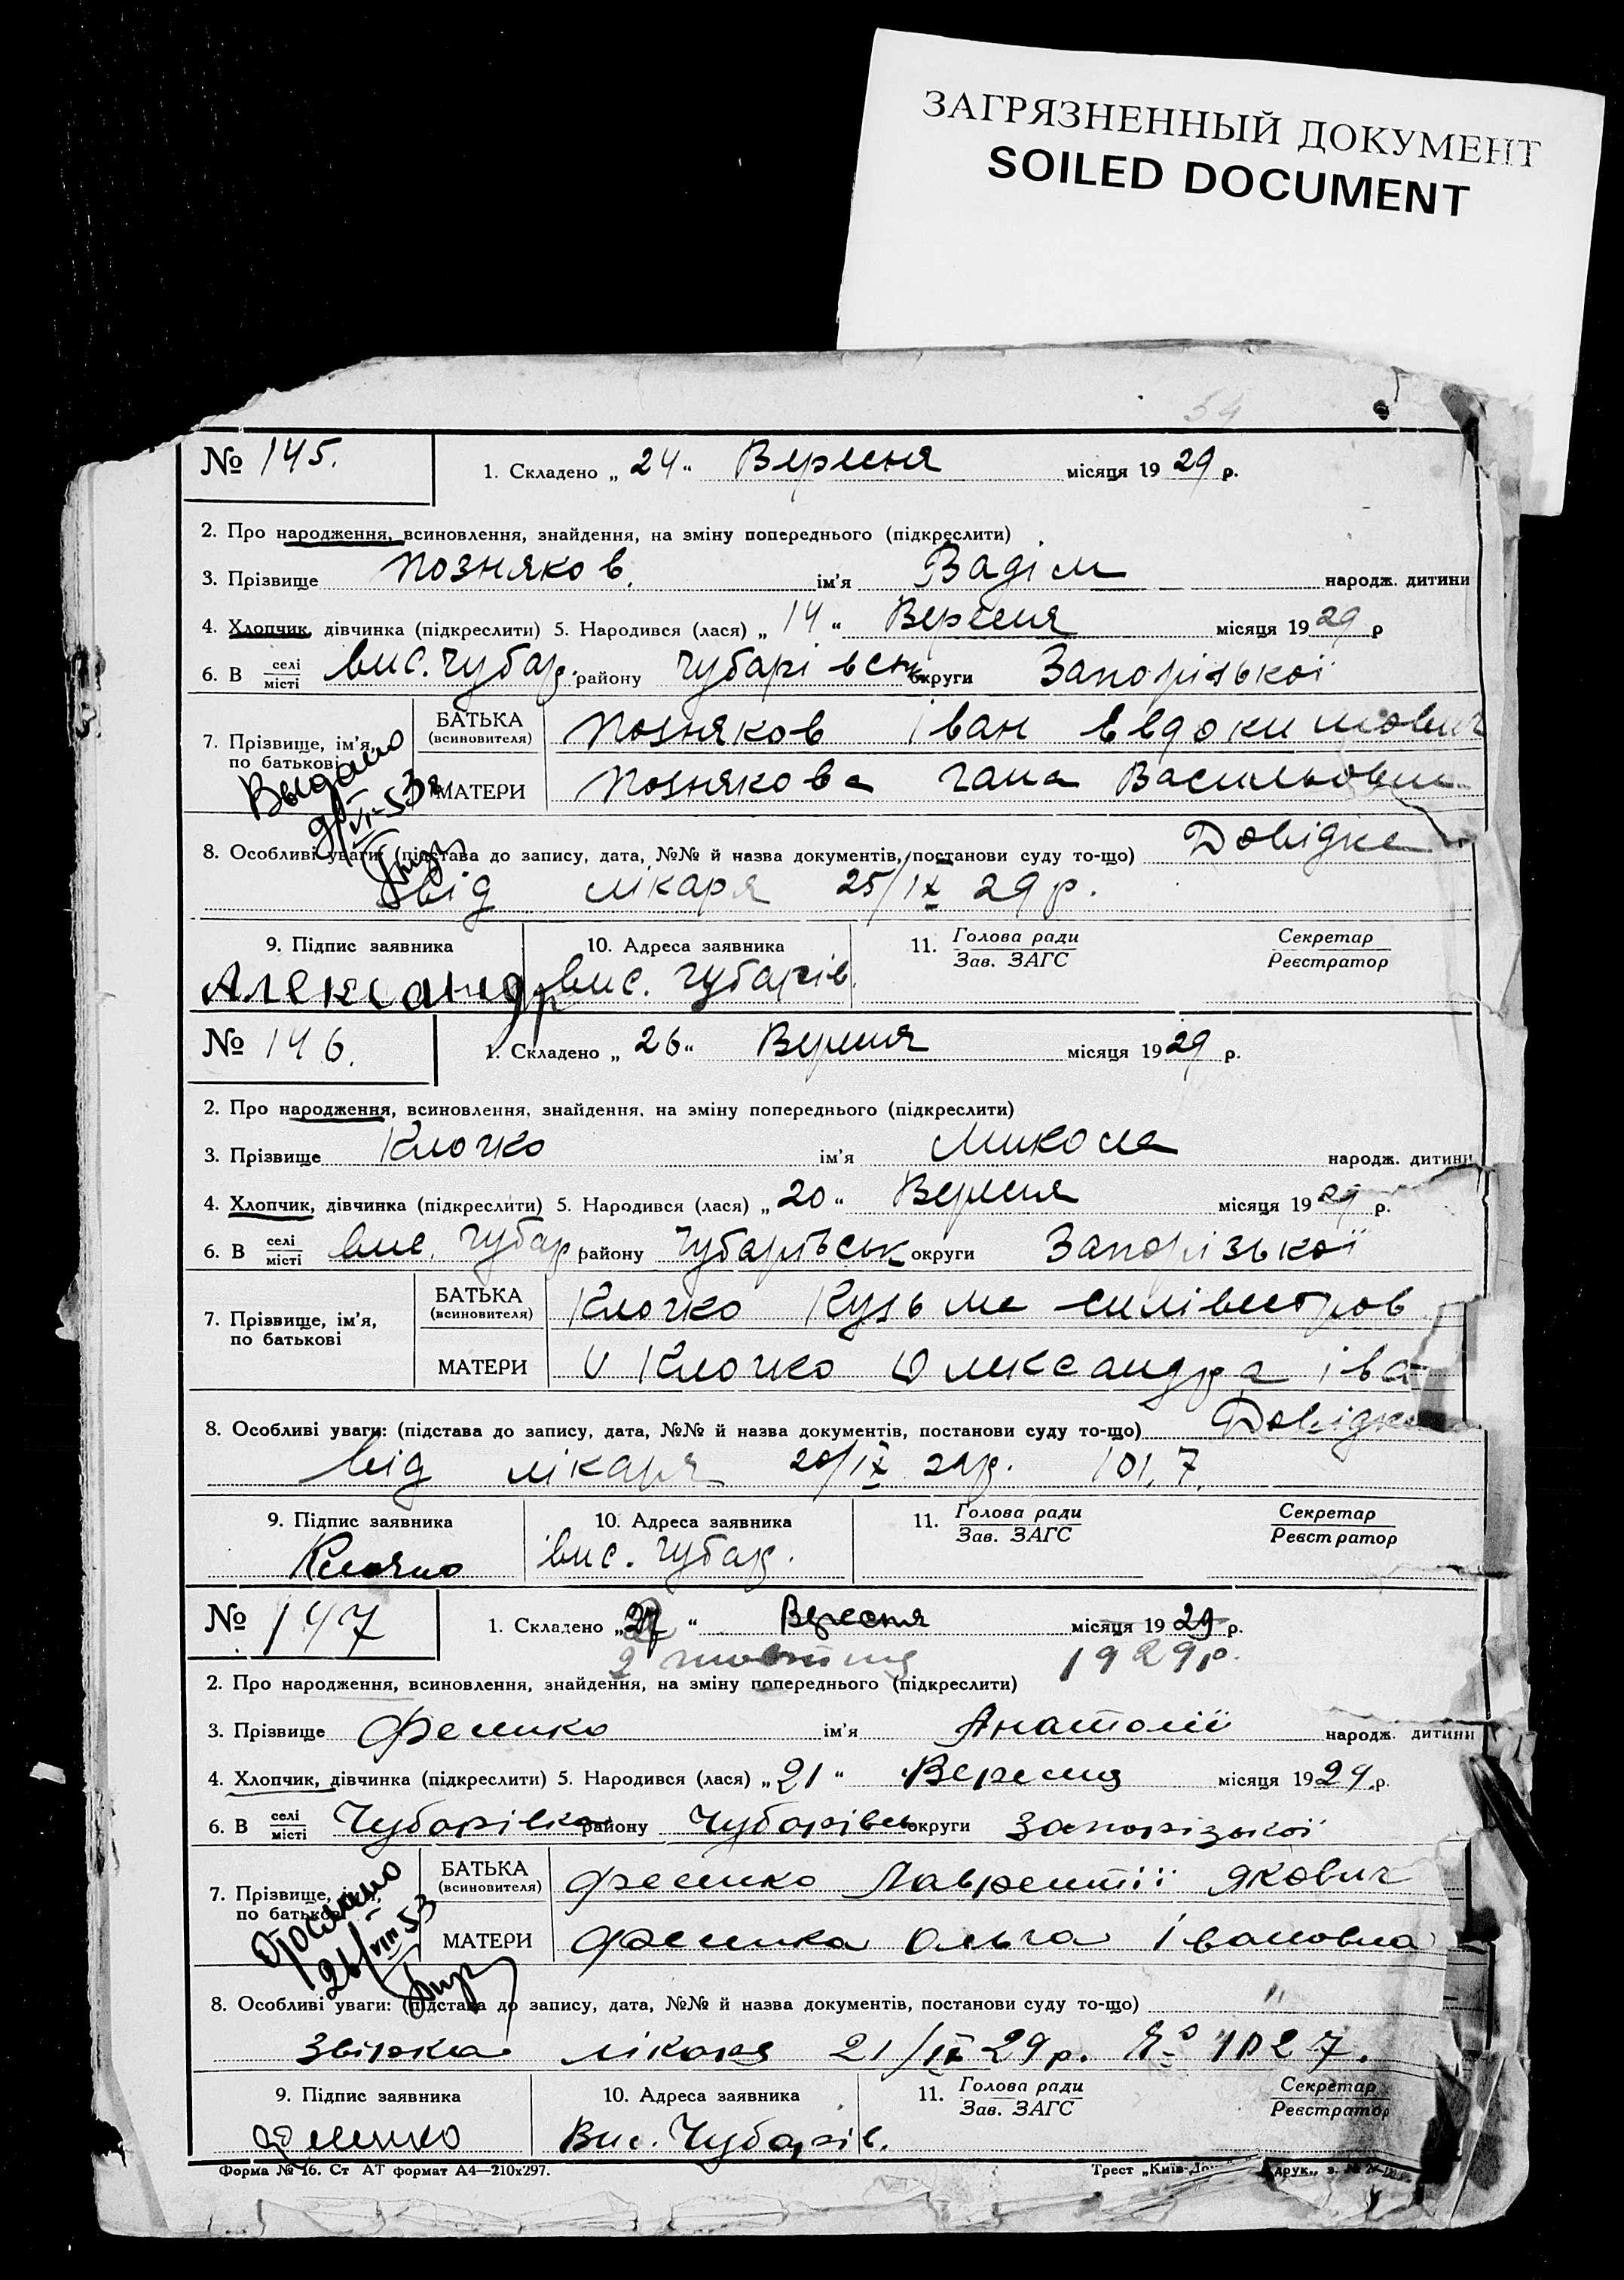 ЗАГРЯЗНЕННЫЙ ДОКУМЕНТ
SOILED DOCUMENT
54
№ 145.
1. Складено „ 24 “ Вересня місяця 19 29 р.
2. Про народження, всиновлення, знайдення, на зміну попереднього (підкреслити)
3. Прізвище Позняков. ім'я Вадім народж. дитини
4. Хлопчик, дівчинка (підкреслити) 5. Народився (лася) „ 14 “ Вересня місяця 19 29 р
6. В селі/місті вис. Чубар. району Чубарівськ округи Запорізької
7. Прізвище, ім'я, по батькові
БАТЬКА (всиновителя) Позняков Іван Евдокимович
МАТЕРИ Познякова Гана Васильовна
Выдано
9/VI-53
8. Особливі уваги: (підстава до запису, дата, №№ й назва документів, постанови суду то-що) Довідка
від лікаря 25/IX 29 р.
9. Підпис заявника
10. Адреса заявника
11. Голова ради/Зав. ЗАГС
Секретар/Реєстратор
Александр вис. Чубарів.
№ 146.
1. Складено „ 26 “ Вересня місяця 19 29 р.
2. Про народження, всиновлення, знайдення, на зміну попереднього (підкреслити)
3. Прізвище Клочко ім'я Микола народж. дитини
4. Хлопчик, дівчинка (підкреслити) 5. Народився (лася) „ 20 “ Вересня місяця 19 29 р.
6. В селі/місті вис. Чубар. району Чубарівськ округи Запорізької
7. Прізвище, ім'я, по батькові
БАТЬКА (всиновителя) Клочко Кузьма Силівестров
МАТЕРИ Клочко Олександра Іва
8. Особливі уваги: (підстава до запису, дата, №№ й назва документів, постанови суду то-що) Довідка
від лікаря 20/IX 29 р. 101.7.
9. Підпис заявника
10. Адреса заявника
11. Голова ради/Зав. ЗАГС
Секретар/Реєстратор
Клочко вис. Чубар.
№ 147
1. Складено „ 27 “ Вересня місяця 19 29 р.
2 жовтня 1929 р.
2. Про народження, всиновлення, знайдення, на зміну попереднього (підкреслити)
3. Прізвище Фесенко ім'я Анатолії народж. дитини
4. Хлопчик, дівчинка (підкреслити) 5. Народився (лася) „ 21 “ Вересня місяця 19 29 р.
6. В селі/місті Чубарівка району Чубарівсь округи Запорізької
7. Прізвище, ім'я, по батькові
БАТЬКА (всиновителя) Фесенко Лаврентії Якович
МАТЕРИ Фесенка Ольга Івановна
26/VIII 53
8. Особливі уваги: (підстава до запису, дата, №№ й назва документів, постанови суду то-що)
Звірка лікаря 21/IX 29 р. № 1027.
9. Підпис заявника
10. Адреса заявника
11. Голова ради/Зав. ЗАГС
Секретар/Реєстратор
Фесенко Вис. Чубарів.
Форма № 16. Ст АТ формат А4—210х297.
Трест „Київ-Д друк.,